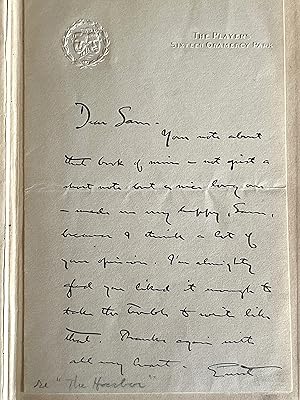 THE PLAYERS
SIXTEEN GRAMERCY PARK
Dear Sam -
Your note about
that book of mine - not just a
short note but a nice long one
- made me very happy, Sam,
because I think a lot of
your opinion. I'm almighty
glad you liked it enough to
take the trouble to write like
that. Thanks again with
all my heart. Ernest
re "The Harbor"